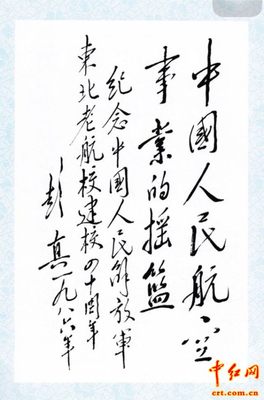 中國人民航空
事業的摇籃
纪念中國人民解放軍
東北老航校建校四十周年
彭真一九八六年
中红网
crt.com.cn